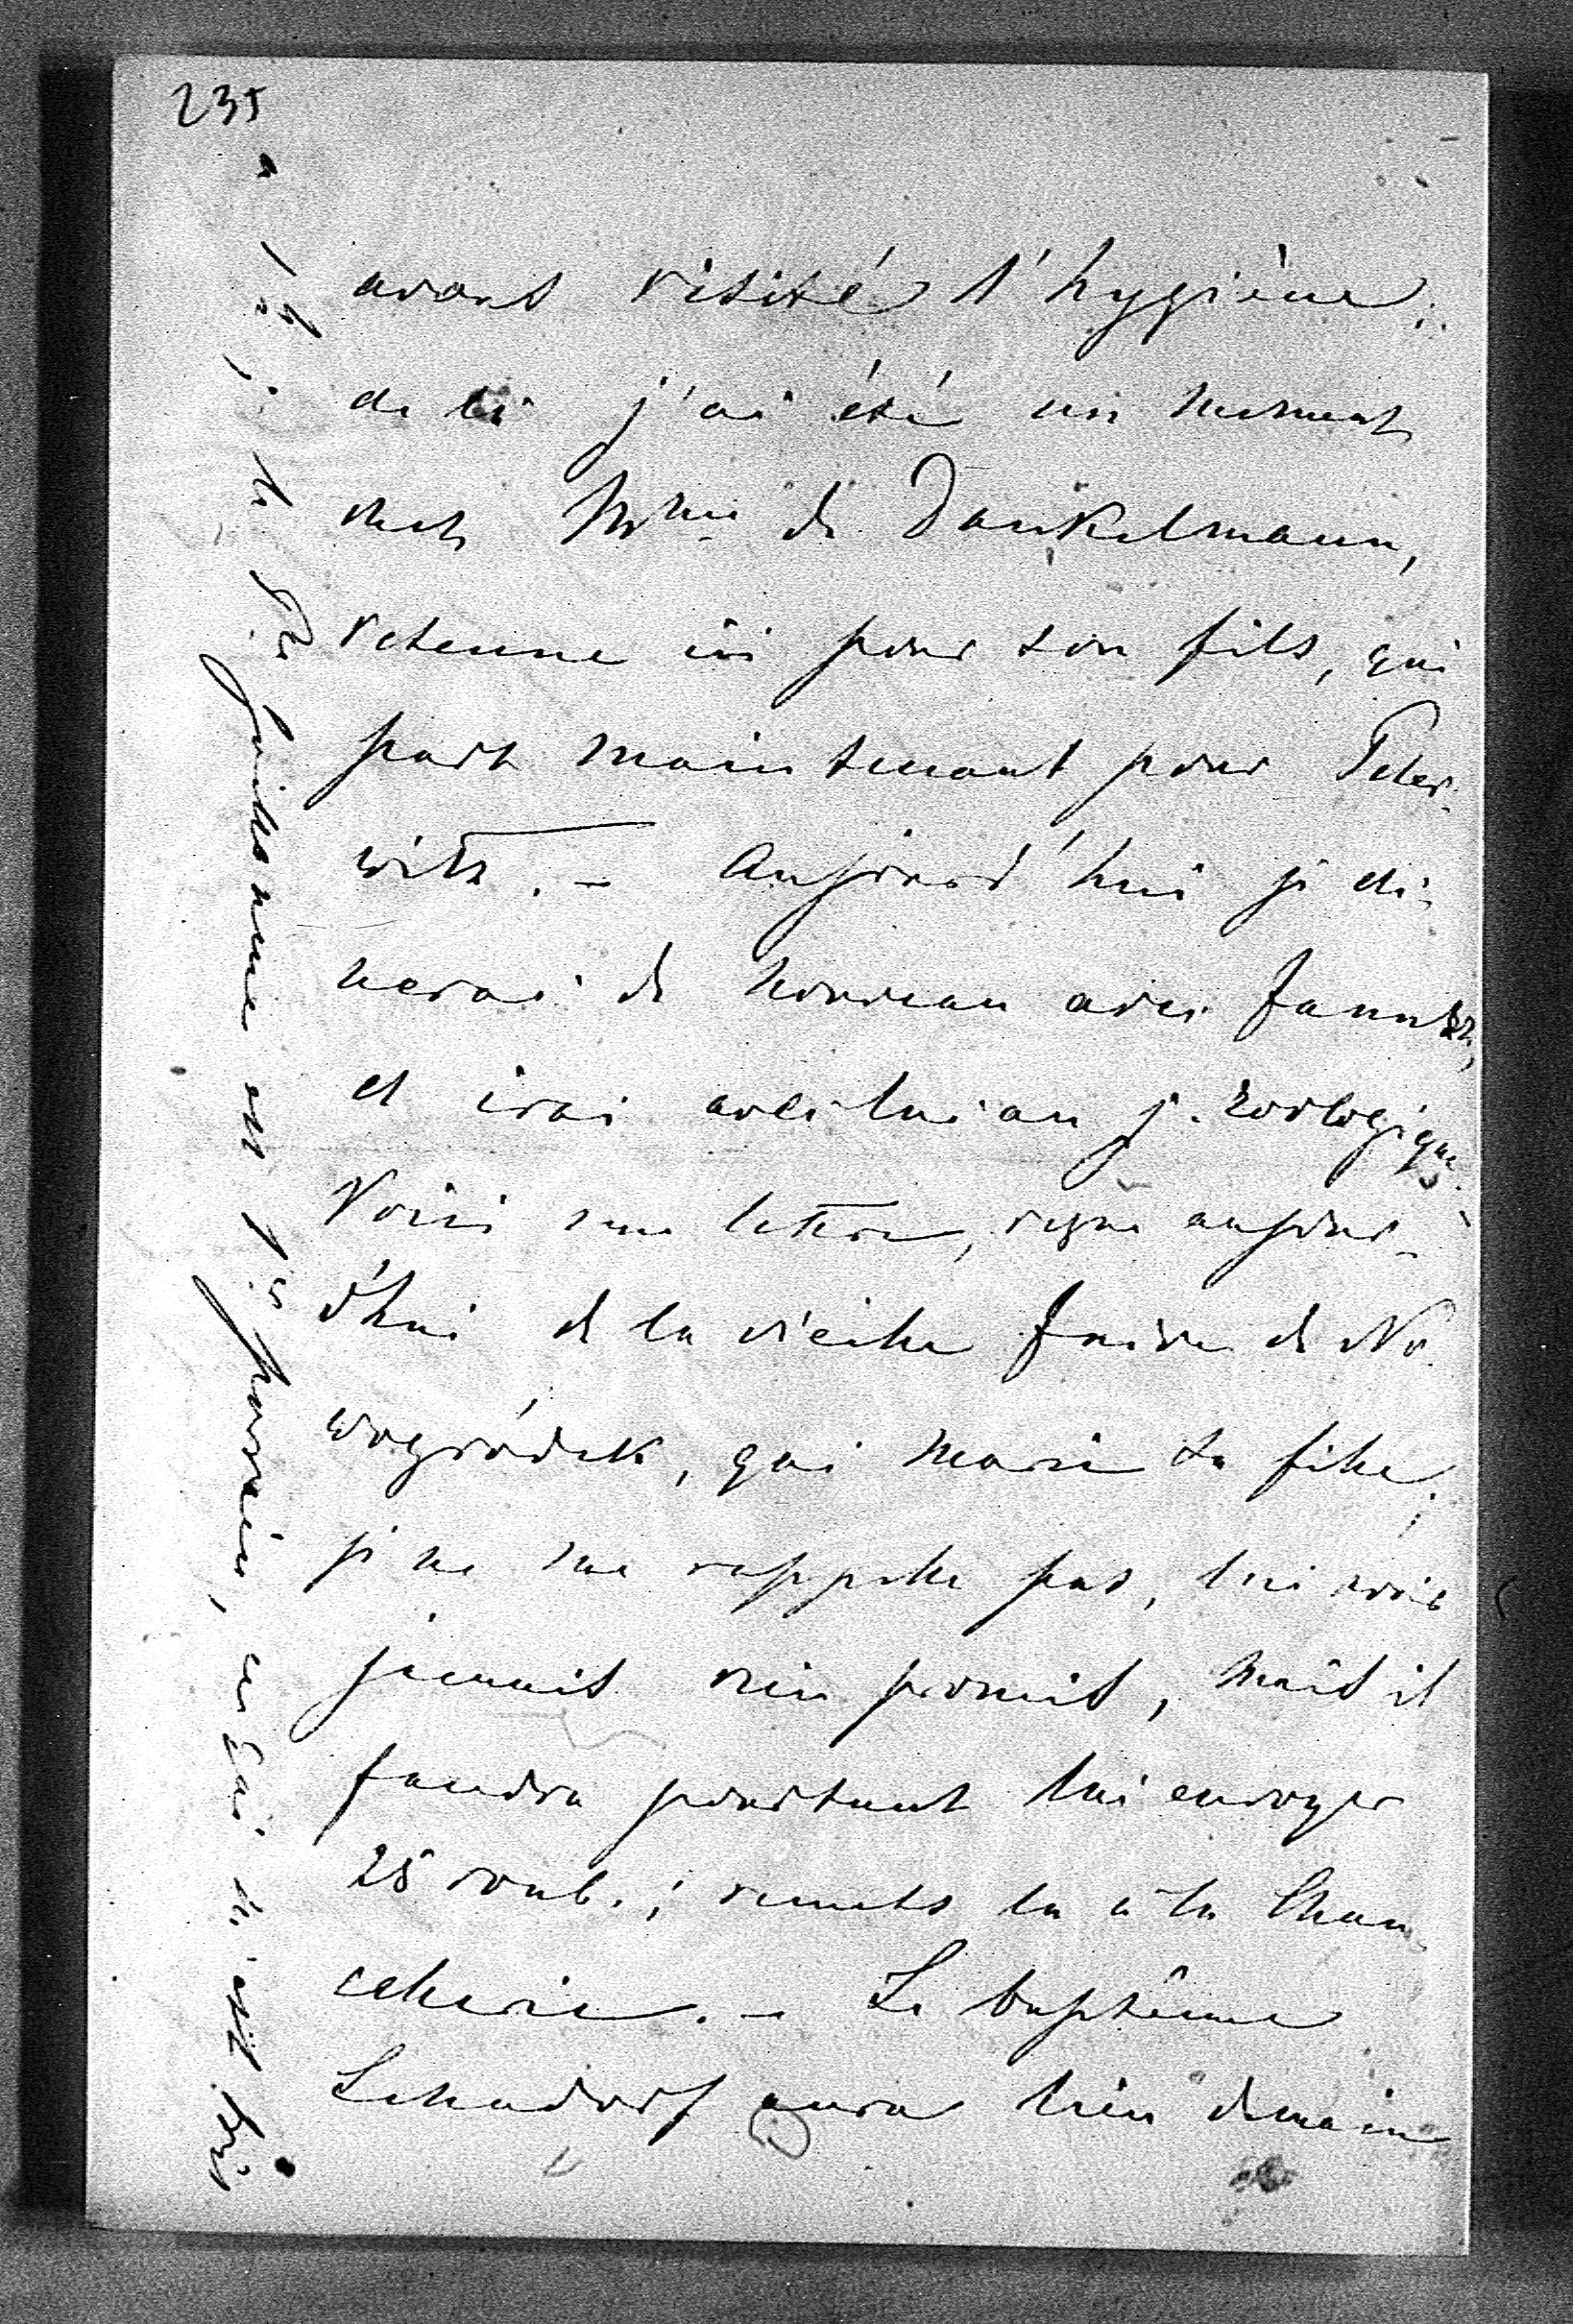 235
avons visité l'hygiène;
de là j'ai été un moment
chez Mme de Dankelmann,
retenue ici pour son fils, qui
part maintenant pour Peter-
witz. – Aujourd'hui je di-
nerai de nouveau avec
et irai avec lui au j. zoologique.
Voici une lettre, reçue aujour-
d'hui de la vieille Juive de No-
wogródek, qui marie sa fille;
je ne me rappelle pas, lui avoir
jamais rien promis, mais il
faudra pourtant lui envoyer
25 roub.; remets la à la Chan-
cellerie. – Le baptême
Lehndorf aura lieu demain
à le Pr. Guillaume est parrain,